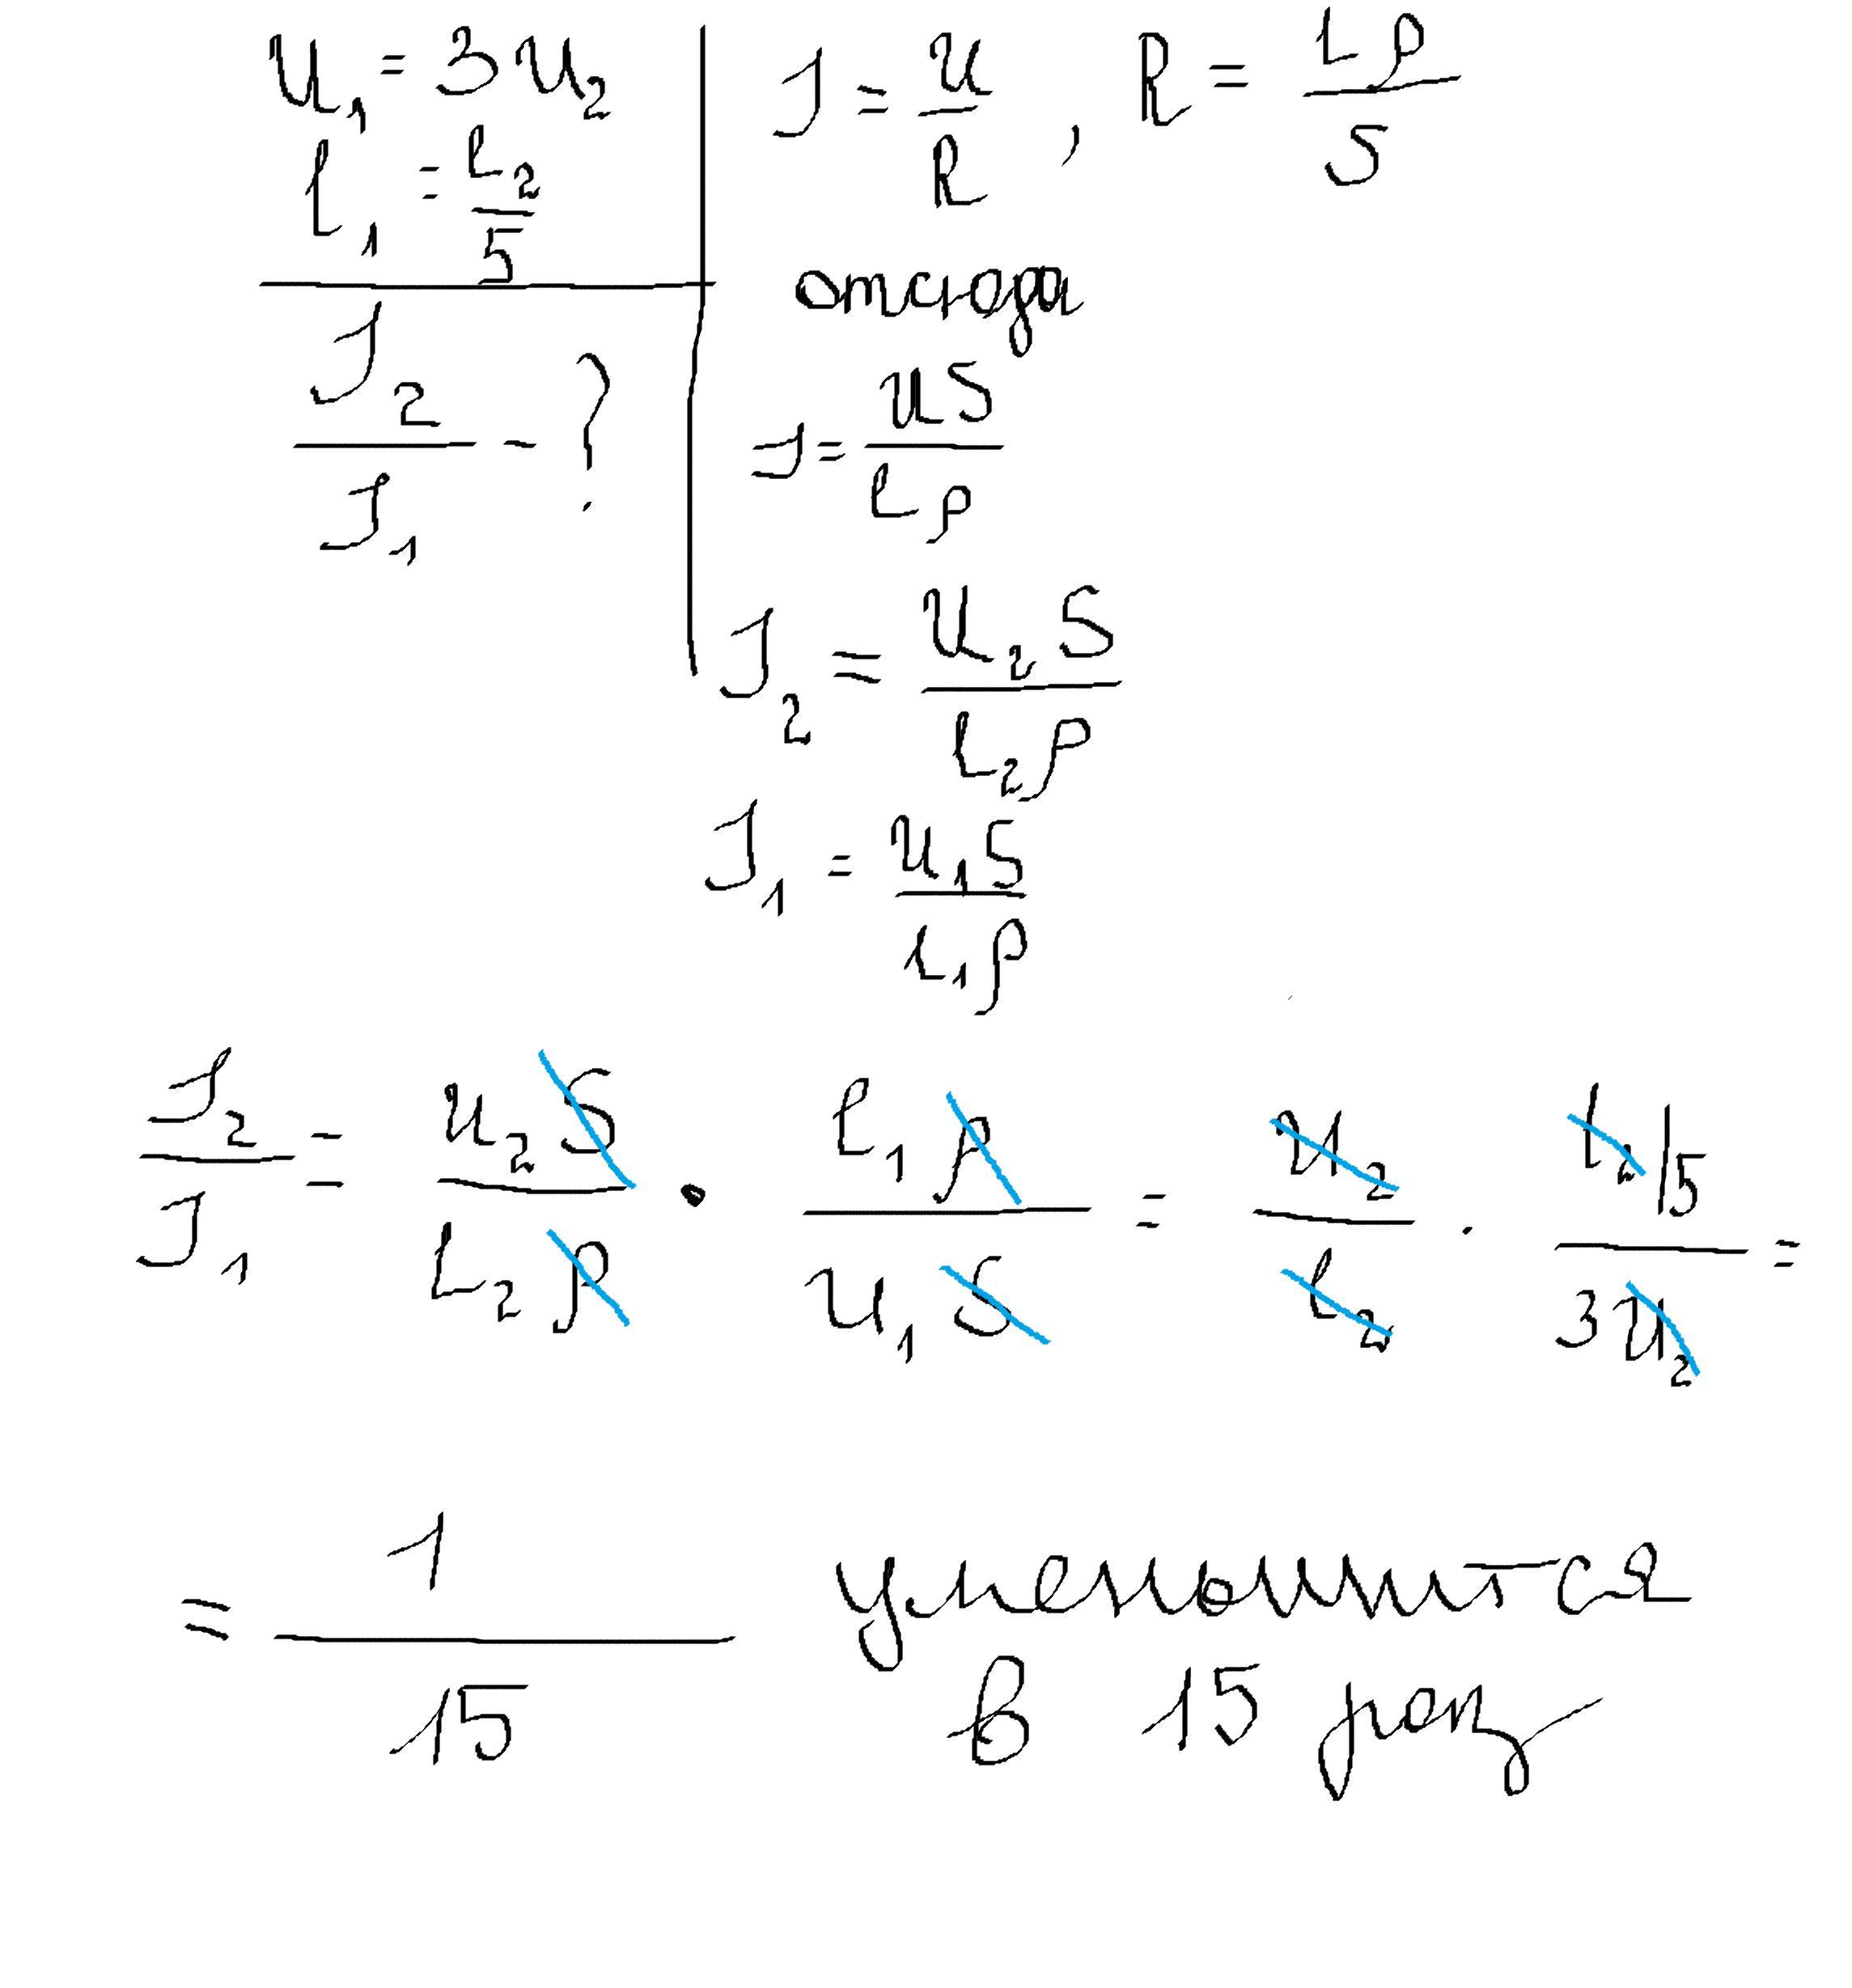 U₁ = 3U₂
l₁ = l₂/5
I₂/I₁ - ?
I = U/R , R = Lρ/S
отсюда
I = US/lρ
I₂ = U₂S/l₂ρ
I₁ = U₁S/l₁ρ
I₂/I₁ = U₂S/L₂ρ · l₁ρ/U₁S = U₂/l₂ · l₂/5/3U₂ =
= 1/15 уменьшится
в 15 раз